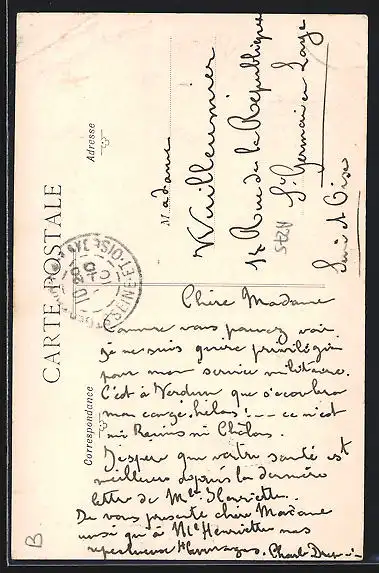 CARTE POSTALE
Correspondance
Adresse
Madame
Vuilleumier
12 Rue de la République
St Germain en Laye
Seine et Oise
SEINE-ET-OISE
Chère Madame
Comme vous pouvez voir
je ne suis guère privilégié
pour mon service militaire.
C'est à Verdun que s'écoulera
mon congé, hélas! --- ce n'est
ni Reims ni Châlons.
J'espère que votre santé est
meilleure depuis la dernière
lettre de Mlle Henriette.
De vous présente chère Madame
ainsi qu'à Mlle Henriette mes
respectueux Hommages. Charles
B